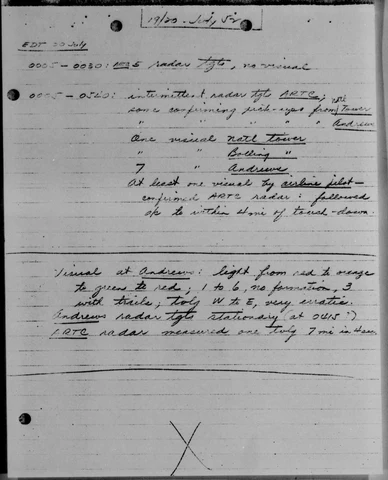 19/20 July, 52
EDT 20 July
0005 – 0030: E radar tgts, no visual
0005 – 0540: intermittent radar tgts ARTC;
some confirming pick-ups from Nat'l Tower
" " " " Andrews
One visual Nat'l tower
" " Bolling "
7 " Andrews
At least one visual by airline pilot –
confirmed ARTC radar: followed
up to within 4 mi of touch-down.
Visual at Andrews: light from red to orange
to green to red; 1 to 6, no formation, 3
with trails; tvlg W to E, very erratic.
Andrews radar tgts stationary (at 0415?)
ARTC radar measured one tvlg 7 mi in 4 sec
X